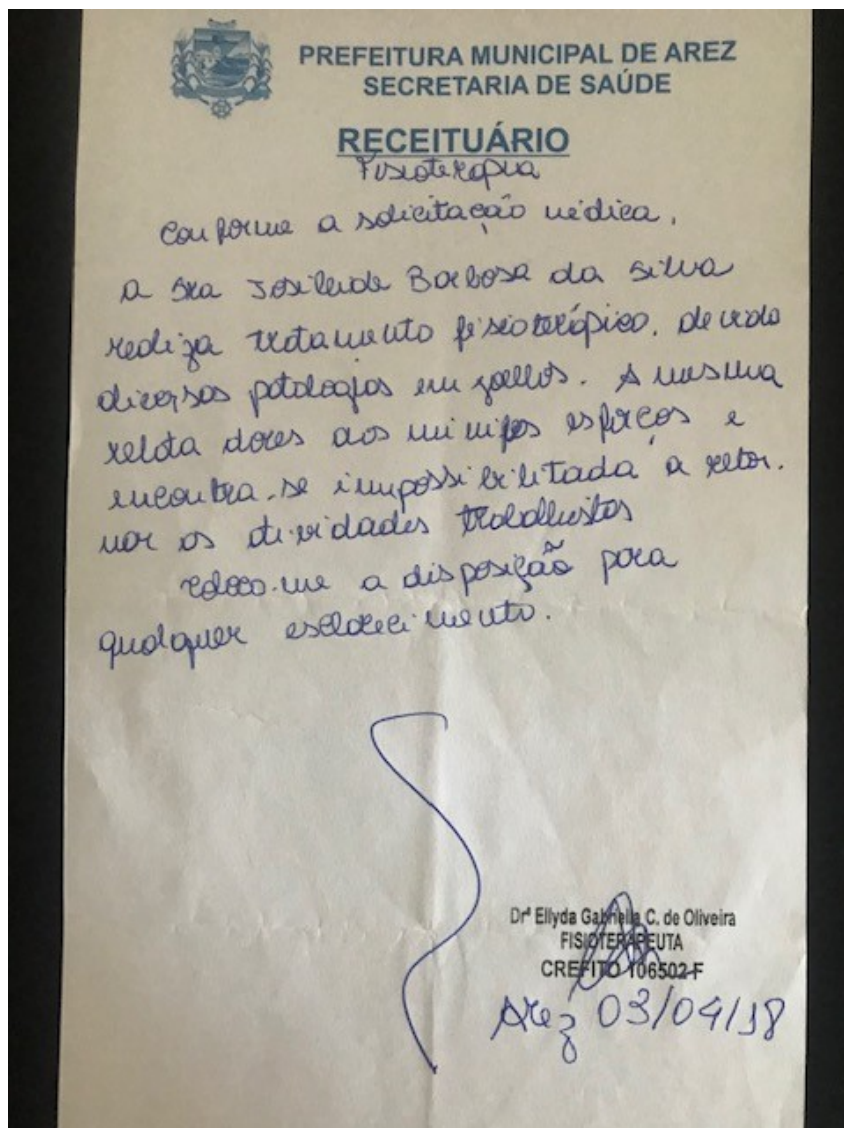 PREFEITURA MUNICIPAL DE AREZ
SECRETARIA DE SAÚDE
RECEITUÁRIO
Fisioterapia
Conforme a solicitação médica,
a Sra Josileide Barbosa da Silva
realiza tratamento fisioterápico, devido
diversas patologias em joelhos. A mesma
relata dores aos minimos esforços e
encontra-se impossibilitada a retor-
nar as atividades trabalhistas
Coloco-me a disposição para
qualquer esclarecimento.
Drª Ellyda Gabriella C. de Oliveira
FISIOTERAPEUTA
CREFITO 106502-F
Arez 03/04/18